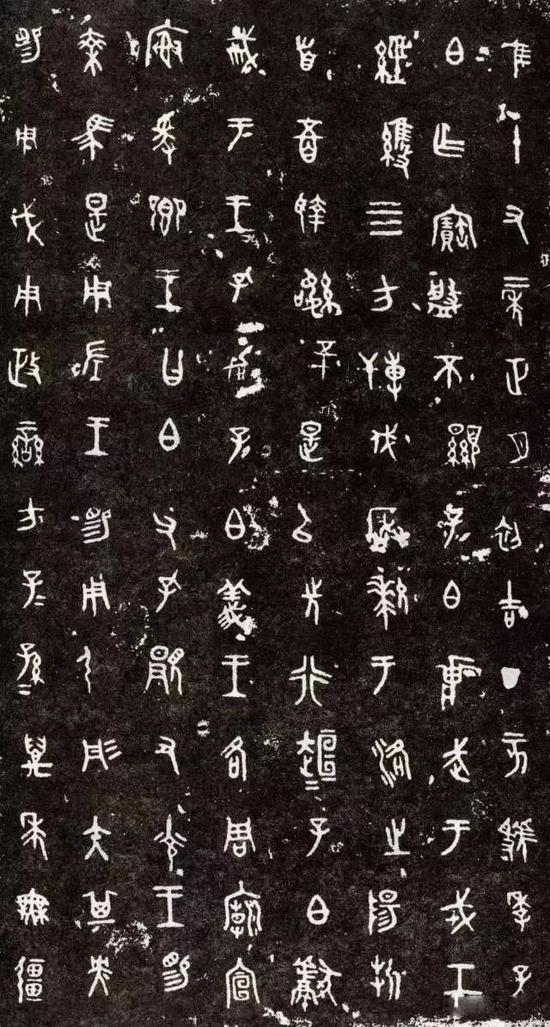 隹十又二年正月初吉丁亥虢季子
白乍寶盤不顯子白壯武于戎工
經維四方搏伐玁狁于洛之陽折
首五百執訊五十是以先行趄趄子白獻
馘于王王孔加子白義王各周廟宣
廟爰鄉王曰白父孔顯又光王賜
乘馬是用左王賜用弓彤矢其央
賜用戉用政蠻方子子孫孫萬年無疆